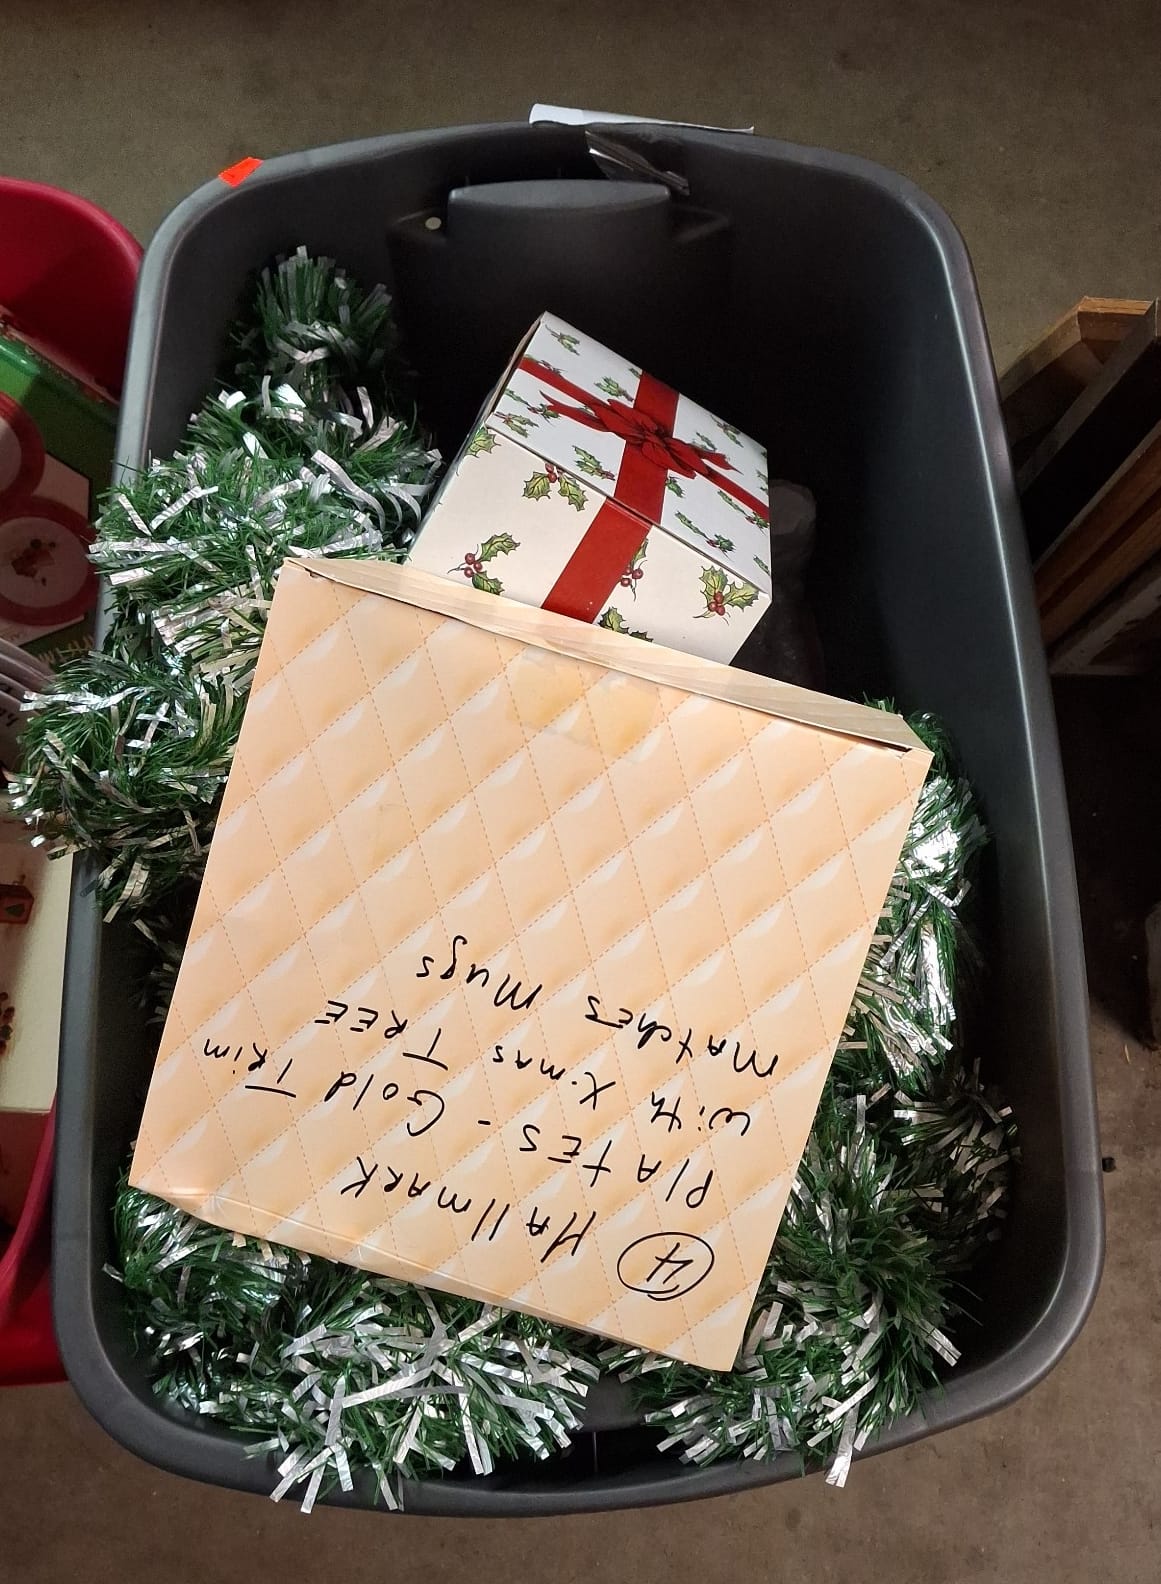 ④ HAllmARK
PlATES - Gold TRim
With X·mas TREE
MAtchES Mugs